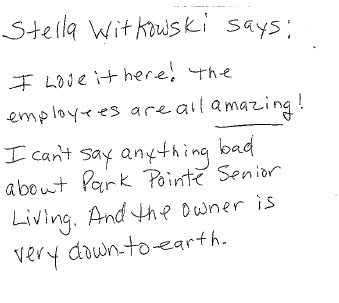 Stella Witkowski says:
I Love it here! The
employees are all amazing!
I can't say anything bad
about Park Pointe Senior
Living. And the owner is
very down-to-earth.